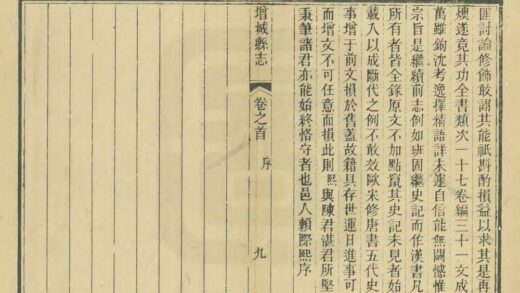 匪討論修飾敢詡其能祇斟酌損益以求其是再
燠遂竟其功全書類次一十七卷編三十一文成
萬雖鉤沈考逸擇精語詳未遽自信能無闕憾惟
宗旨是繼續前志例如班固繼史記而作漢書凡
所有者皆全錄原文不加點竄其史記未見者始
載入以成斷代之例不敢效歐宋修唐書五代史
事增于前文損於舊蓋故籍具存世運日進事可
而增文不可任意而損此則熙與陳君湛君所堅
秉筆諸君亦能始終恪守者也邑人賴際熙序
增城縣志 卷之首 序 九